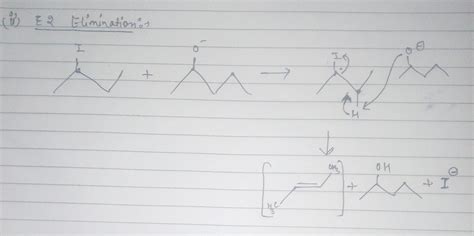 (ii) E2 Elimination:→
I O⁻ I O ⊖
+ →
H
CH₃ OH ⊖
+ + I
H₃C